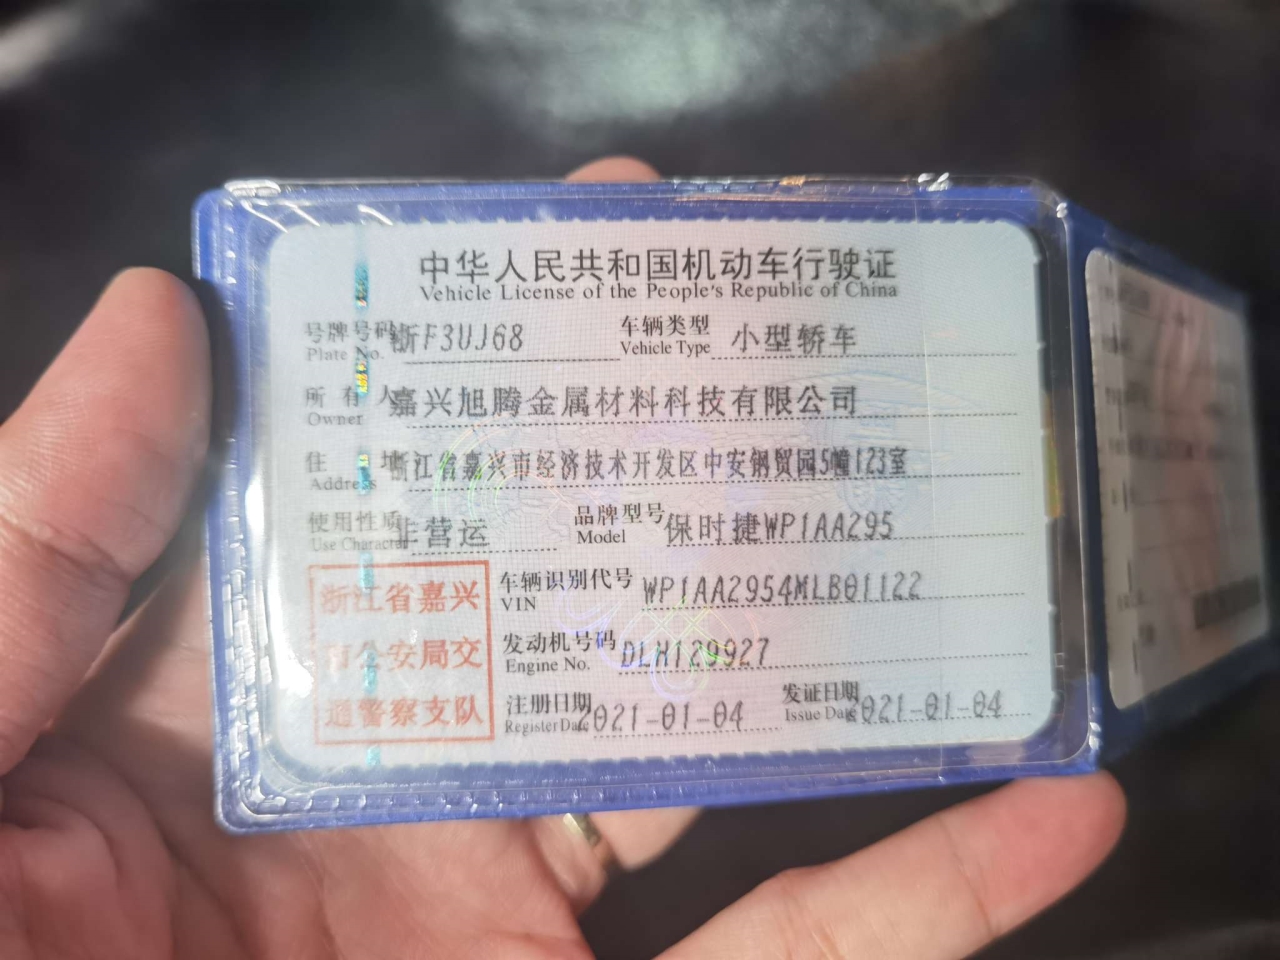 中华人民共和国机动车行驶证
Vehicle License of the People's Republic of China
号牌号码 浙F3UJ68 车辆类型 小型轿车
Plate No. Vehicle Type
所有人 嘉兴旭腾金属材料科技有限公司
Owner
住址 浙江省嘉兴市经济技术开发区中安钢贸园5幢123室
Address
使用性质 非营运 品牌型号 保时捷WP1AA295
Use Character Model
浙江省嘉兴
市公安局交
通警察支队
车辆识别代号 WP1AA2954MLB01122
VIN
发动机号码 DLH129927
Engine No.
注册日期 2021-01-04 发证日期 2021-01-04
Register Date Issue Date